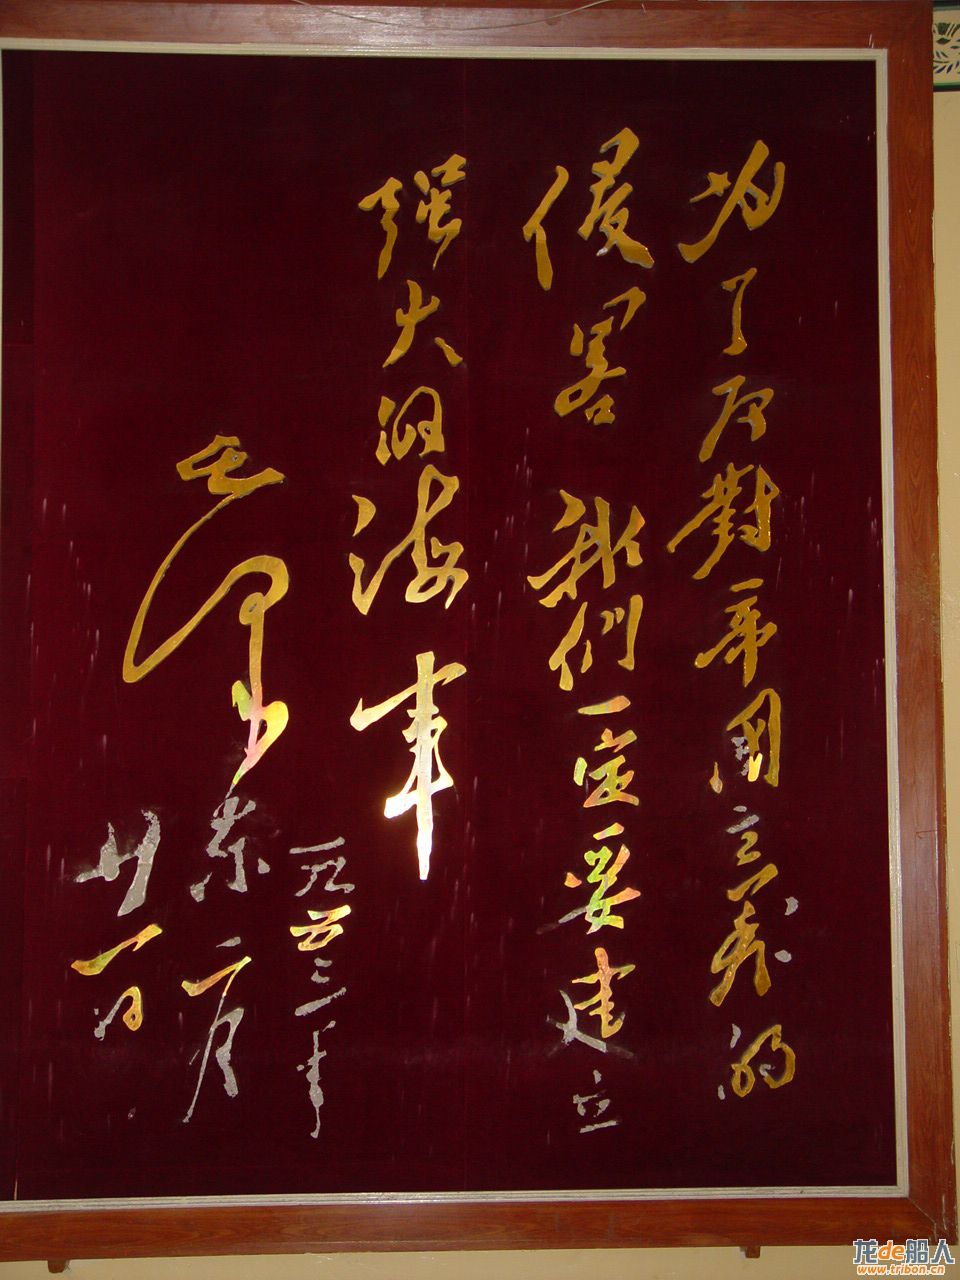 为了反對帝國主義的
侵畧 我們一定要建立
强大的海军
毛泽东
一九五三年
二月
廿一日
龙de船人
www.tribon.cn